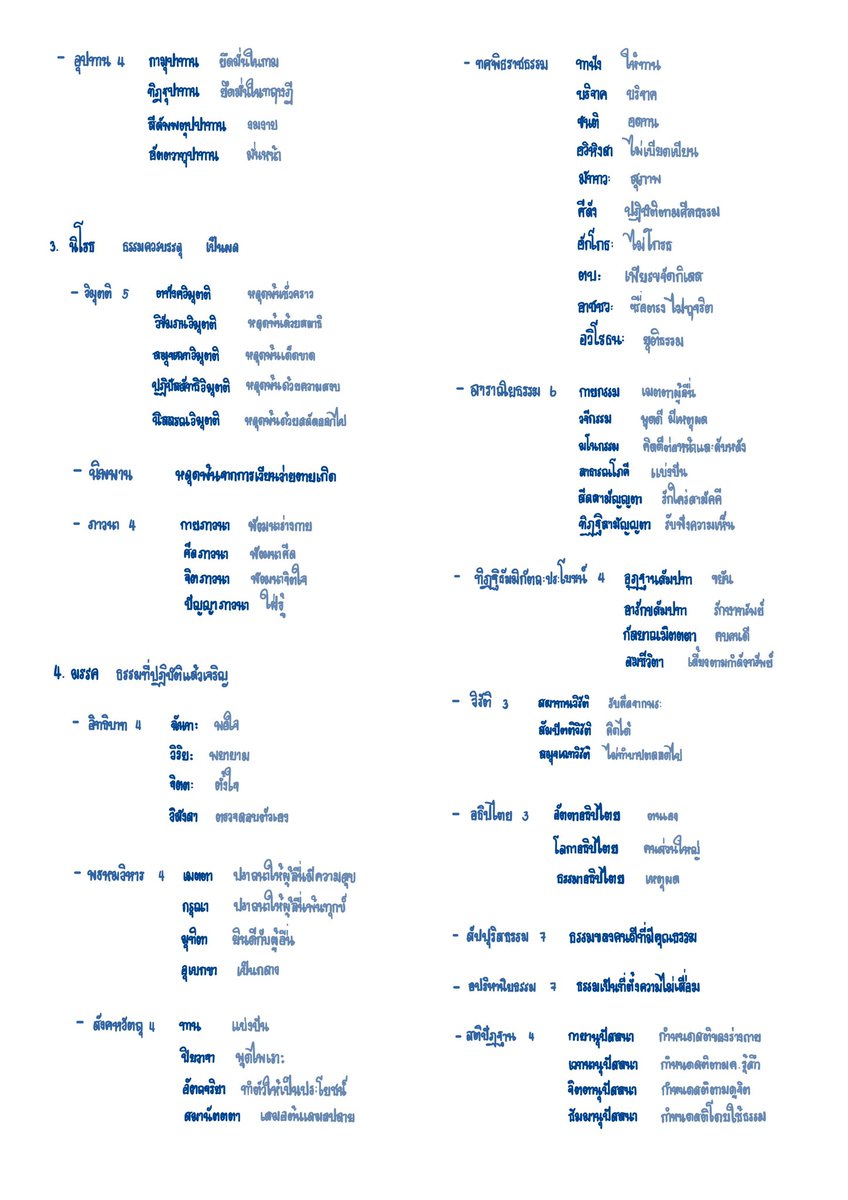 - อุปาทาน 4 กามุปาทาน ยึดมั่นในกาม
ทิฏฐุปาทาน ยึดมั่นในทฤษฎี
สีลัพพตุปาทาน งมงาย
อัตตวาทุปาทาน มั่นหน้า
3. นิโรธ ธรรมควรบรรลุ เป็นผล
- วิมุตติ 5 ตทังควิมุตติ หลุดพ้นชั่วคราว
วิขัมภนวิมุตติ หลุดพ้นด้วยสมาธิ
สมุจเฉทวิมุตติ หลุดพ้นเด็ดขาด
ปฏิปัสสัทธิวิมุตติ หลุดพ้นด้วยความสงบ
นิสสรณวิมุตติ หลุดพ้นด้วยสลัดออกไป
- นิพพาน หลุดพ้นจากการเวียนว่ายตายเกิด
- ภาวนา 4 กายภาวนา พัฒนาร่างกาย
ศีลภาวนา พัฒนาศีล
จิตภาวนา พัฒนาจิตใจ
ปัญญาภาวนา ใฝ่รู้
4. มรรค ธรรมที่ปฏิบัติแล้วเจริญ
- อิทธิบาท 4 ฉันทะ พอใจ
วิริยะ พยายาม
จิตตะ ตั้งใจ
วิมังสา ตรวจสอบตัวเอง
- พรหมวิหาร 4 เมตตา ปรารถนาให้ผู้อื่นมีความสุข
กรุณา ปรารถนาให้ผู้อื่นพ้นทุกข์
มุทิตา ยินดีกับผู้อื่น
อุเบกขา เป็นกลาง
- สังคหวัตถุ 4 ทาน แบ่งปัน
ปิยวาจา พูดไพเราะ
อัตถจริยา ทำตัวให้เป็นประโยชน์
สมานัตตตา เสมอต้นเสมอปลาย
- ทศพิธราชธรรม ทานัง ให้ทาน
บริจาค บริจาค
ขันติ อดทน
อวิหิงสา ไม่เบียดเบียน
มัททวะ สุภาพ
ศีลัง ปฏิบัติตามศีลธรรม
อักโกธะ ไม่โกรธ
ตบะ เพียรขจัดกิเลส
อาชชวะ ซื่อตรง ไม่ทุจริต
อวิโรธนะ ยุติธรรม
- สาราณียธรรม 6 กายกรรม เมตตาผู้อื่น
วจีกรรม พูดดี มีเหตุผล
มโนกรรม คิดดีต่อหน้าและลับหลัง
สาธารณโภคี แบ่งปัน
สีลสามัญญตา รักใคร่สามัคคี
ทิฏฐิสามัญญตา รับฟังความเห็น
- ทิฏฐิธัมมิกัตถะประโยชน์ 4 อุฏฐานสัมปทา ขยัน
อารักขสัมปทา รักษาทรัพย์
กัลยาณมิตตตา คบคนดี
สมชีวิตา เลี้ยงตามกำลังทรัพย์
- วิรัติ 3 สมาทานวิรัติ รับศีลจากพระ
สัมปัตติวิรัติ คิดได้
สมุจเฉทวิรัติ ไม่ทำบาปตลอดไป
- อธิปไตย 3 อัตตาธิปไตย ตนเอง
โลกาธิปไตย คนส่วนใหญ่
ธรรมาธิปไตย เหตุผล
- สัปปุริสธรรม 7 ธรรมของคนดีที่มีคุณธรรม
- อปริหานิยธรรม 7 ธรรมเป็นที่ตั้งความไม่เสื่อม
- สติปัฏฐาน 4 กายานุปัสสนา กำหนดสติของร่างกาย
เวทนานุปัสสนา กำหนดสติตามค.รู้สึก
จิตตานุปัสสนา กำหนดสติตามดูจิต
ธัมมานุปัสสนา กำหนดสติโดยใช้ธรรม